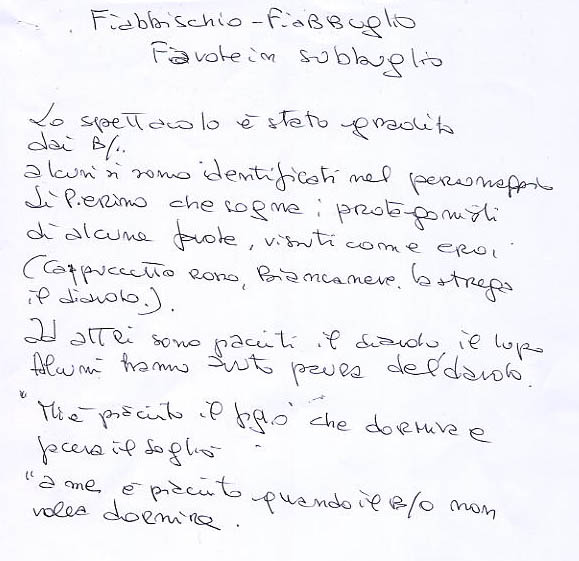 Fiabbischio - FiaBBuglio
Favole in subbuglio
Lo spettacolo è stato gradito
dai B/.
alcuni si sono identificati nel personaggio
di Pierino che sogna i protagonisti
di alcune favole, visti come eroi
(Cappuccetto Rosso, Biancaneve, la strega
il diavolo.).
Ad altri sono piaciuti il diavolo il lupo
Alcuni hanno avuto paura del diavolo.
"Mi è piaciuto il che dormiva e
faceva il sogno"
"a me è piaciuto quando il B/o non
voleva dormire.